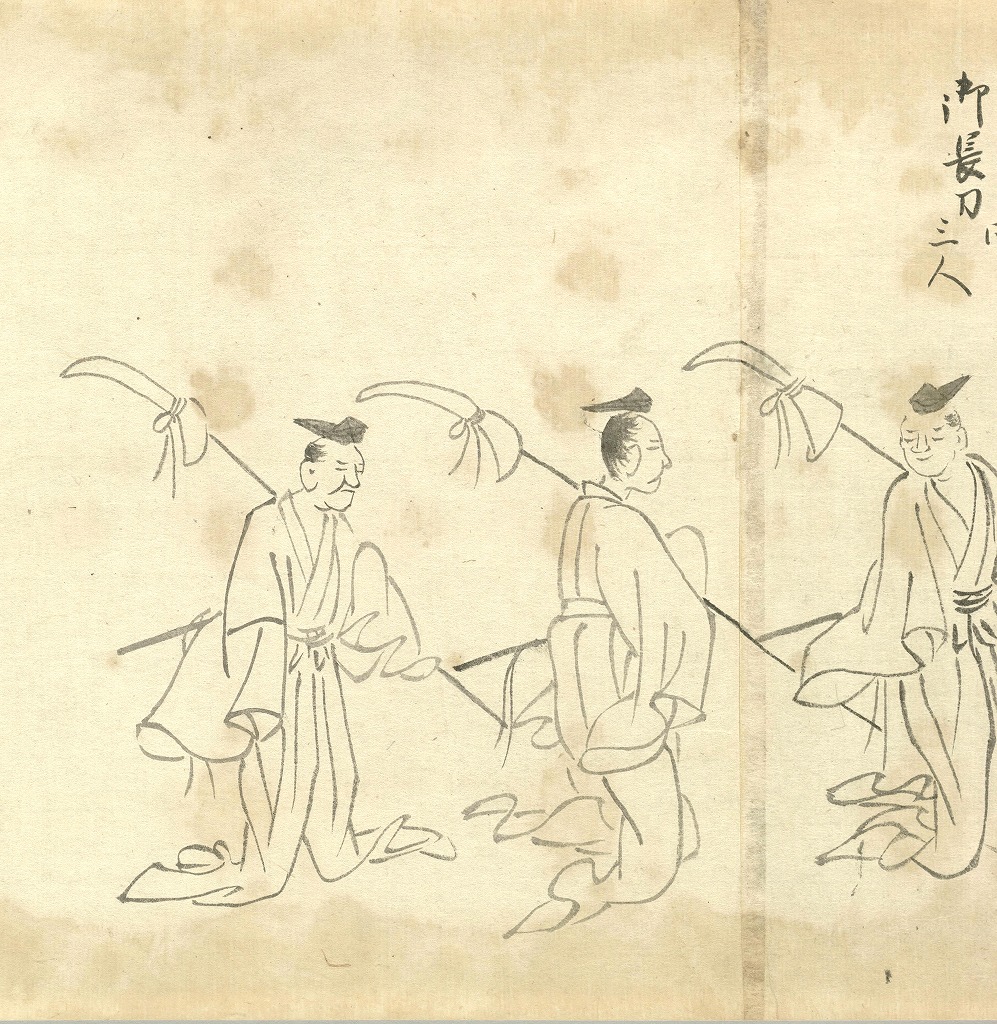 御長刀
三人